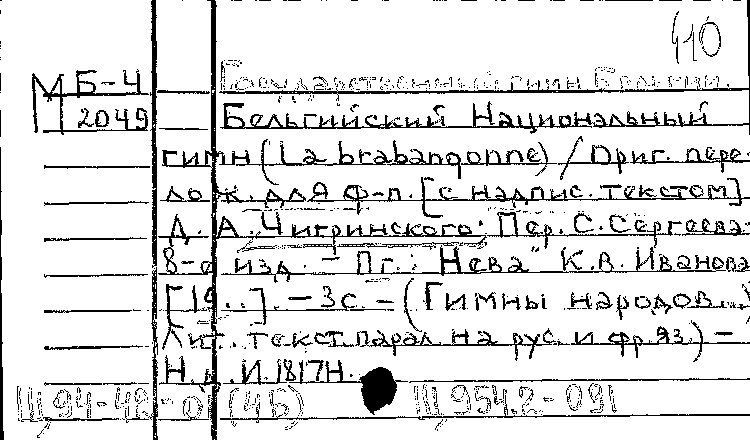 410
М Б-4 Государственный гимн Бельгии.
2049 Бельгийский Национальный
гимн (La brabanqonne) / Ориг. пере-
лож. для ф-п. [с надпис. текстом]
Д. А. Чигринского; Пер. С. Сергеева-
8-е изд. - Пг.: "Нева" К.В. Иванова
[19..]. - 3с - (Гимны народов...)
Лит. текст парал на рус. и фр. яз.) -
Н.д. И.1817Н.
Щ94-42-0 (4Б) Щ954.2-091